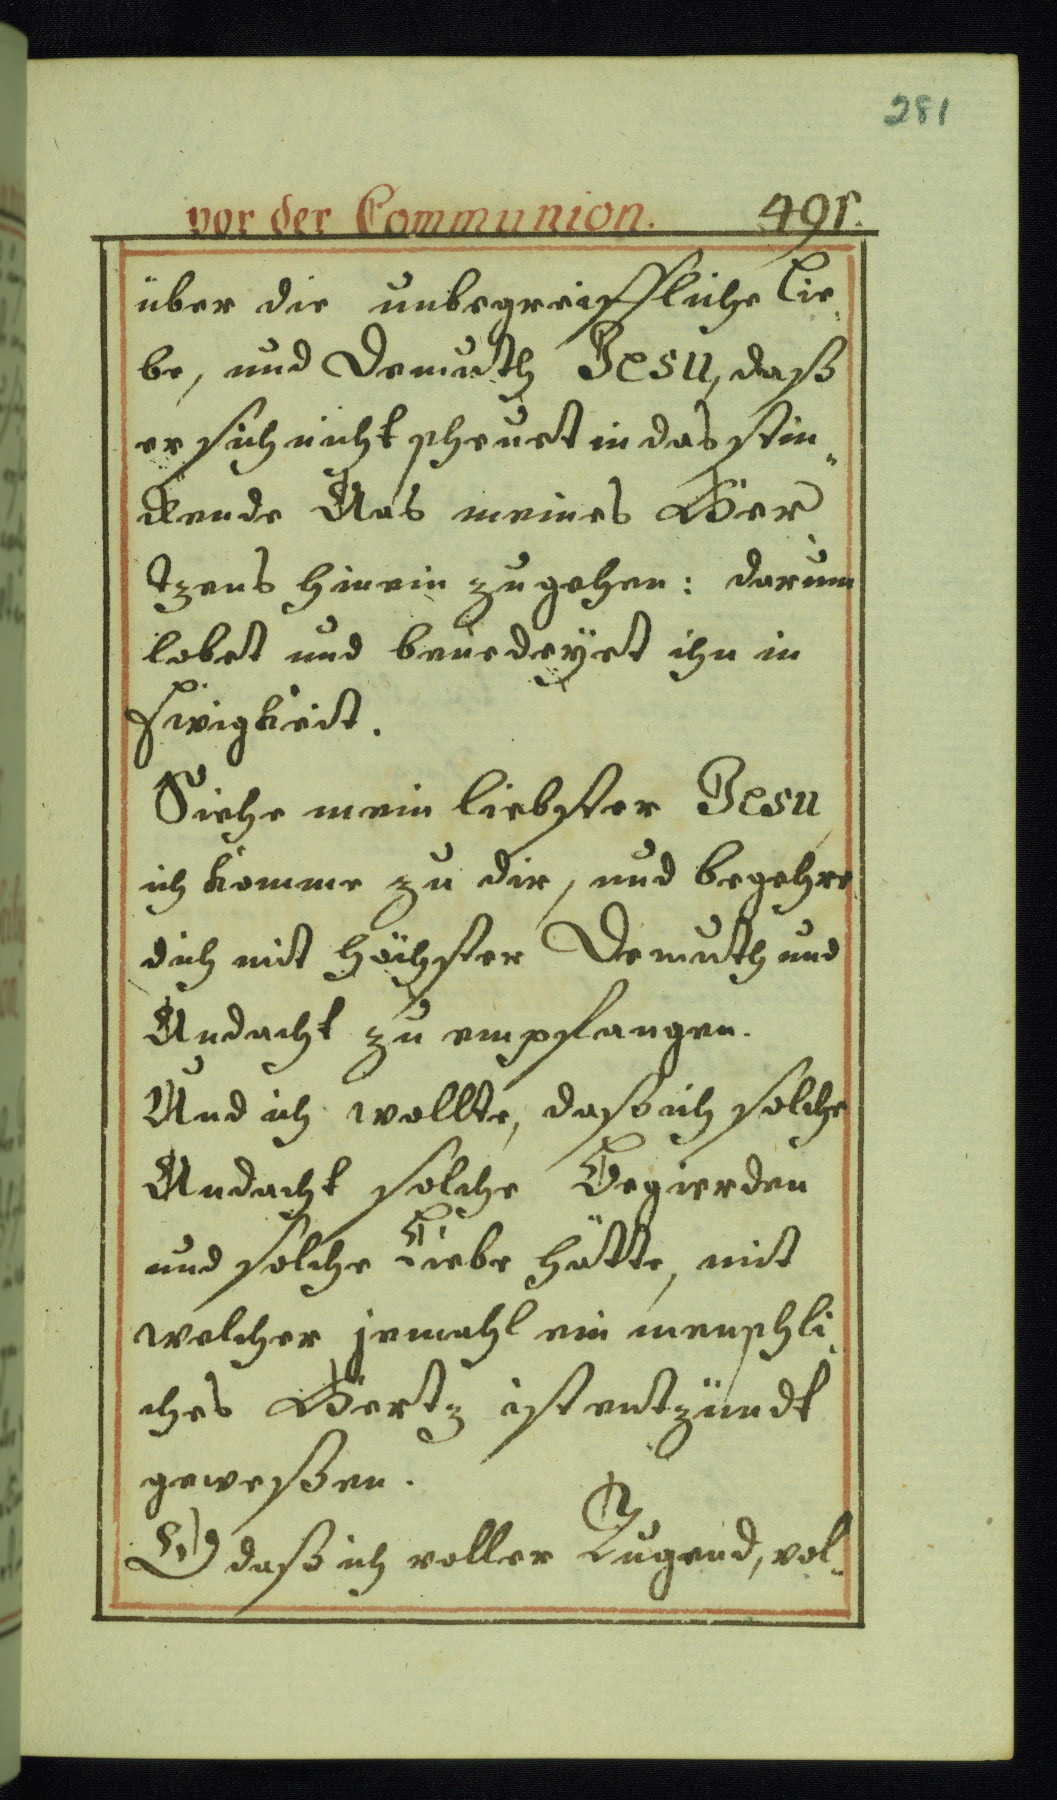 281
vor der Communion. 491.
über die unbegreiffliche Lie-
be, und Demuth Jesu, daß
er sich nicht scheuet in das stin-
ckende Aas meines Her
tzens hinein zu gehen: darum
lobet und benedeyet ihn in
Ewigkeit.
Siehe mein liebster Jesu
ich komme zu dir, und begehre
dich mit höchster Demuth und
Andacht zu empfangen.
Und ich wollte, daß ich solche
Andacht solche Begierden
und solche Liebe hätte, mit
welcher jemahl ein menschli-
ches Hertz ist entzündt
geweßen.
O daß ich voller Tugend, vol-